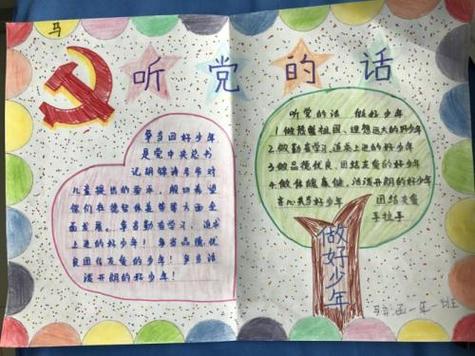 马
听党的话
争当四好少年
是党中央总书
记胡锦涛爷爷对
儿童提出的，殷切希望
你们在德智体美等方面全
面发展。争当勤奋学习、追求
上进的好少年！争当品德优
良团结友爱的少年！争当活
泼开朗的好少年！
听党的话 做好少年
1.做热爱祖国、理想远大的好少年
2.做勤奋学习、追求上进的好少年
3.做品德优良、团结友爱的好少年
4.做体魄强健、活泼开朗的好少年
好少年 团结友爱
手拉手
做好少年
一年一班